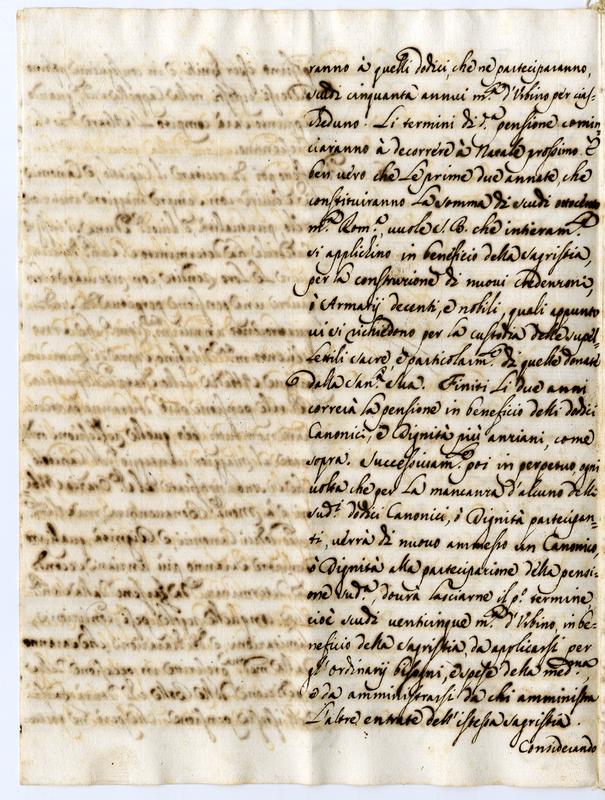 ranno à quelli dodici che ne parteciparanno,
scudi cinquanta annui m.ta d'Urbino per cias-
cheduno. Li termini di d.a pensione comin
ciaranno à decorrere à Natale prossimo. È
ben vero che le prime due annate, che
constituiranno la somma di scudi ottocento
m.ta Rom.a, vuole S. B. che intieram.te
si applichino in beneficio della sagristia,
per la construzione di nuovi Credenzoni,
ò Armarij decenti, e nobili, quali appunto
vi si richiedono per la custodia delle supel-
lettili sacre e particolarm.te di quelle donate
dalla San.tà Sua. Finiti li due anni
correrà la pensione in beneficio delli dodici
Canonici, e Dignità più anziani, come
sopra. Successivam.te poi in perpetuo, ogni
volta che per la mancanza d'alcuno delli
sud.i dodici Canonici, ò Dignità partecipan-
ti, verrà di nuovo ammesso un Canonico,
ò Dignità alla partecipazione della pensi-
one sud.a, dovrà lasciarne il p.o termine
cioè scudi venticinque m.ta d'Urbino, in be-
neficio della sagristia da applicarsi per
gl'Ordinarij bisogni, e spese della med.ma,
e da amministrarsi da chi amministra
l'altre entrate dell'istessa sagristia.
Considerando